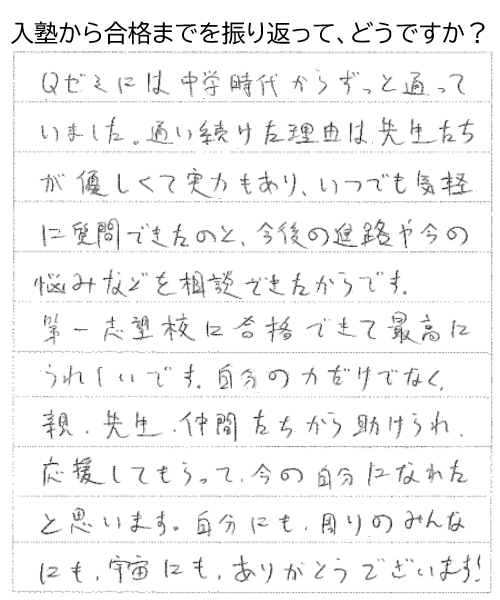 入塾から合格までを振り返って、どうですか？
Qゼミには中学時代からずっと通って
いました。通い続けた理由は先生たち
が優しくて実力もあり、いつでも気軽
に質問できたのと、今後の進路や今の
悩みなどを相談できたからです。
第一志望校に合格できて最高に
うれしいです。自分の力だけでなく、
親、先生、仲間たちから助けられ、
応援してもらって、今の自分になれた
と思います。自分にも、周りのみんな
にも、宇宙にも、ありがとうございます!